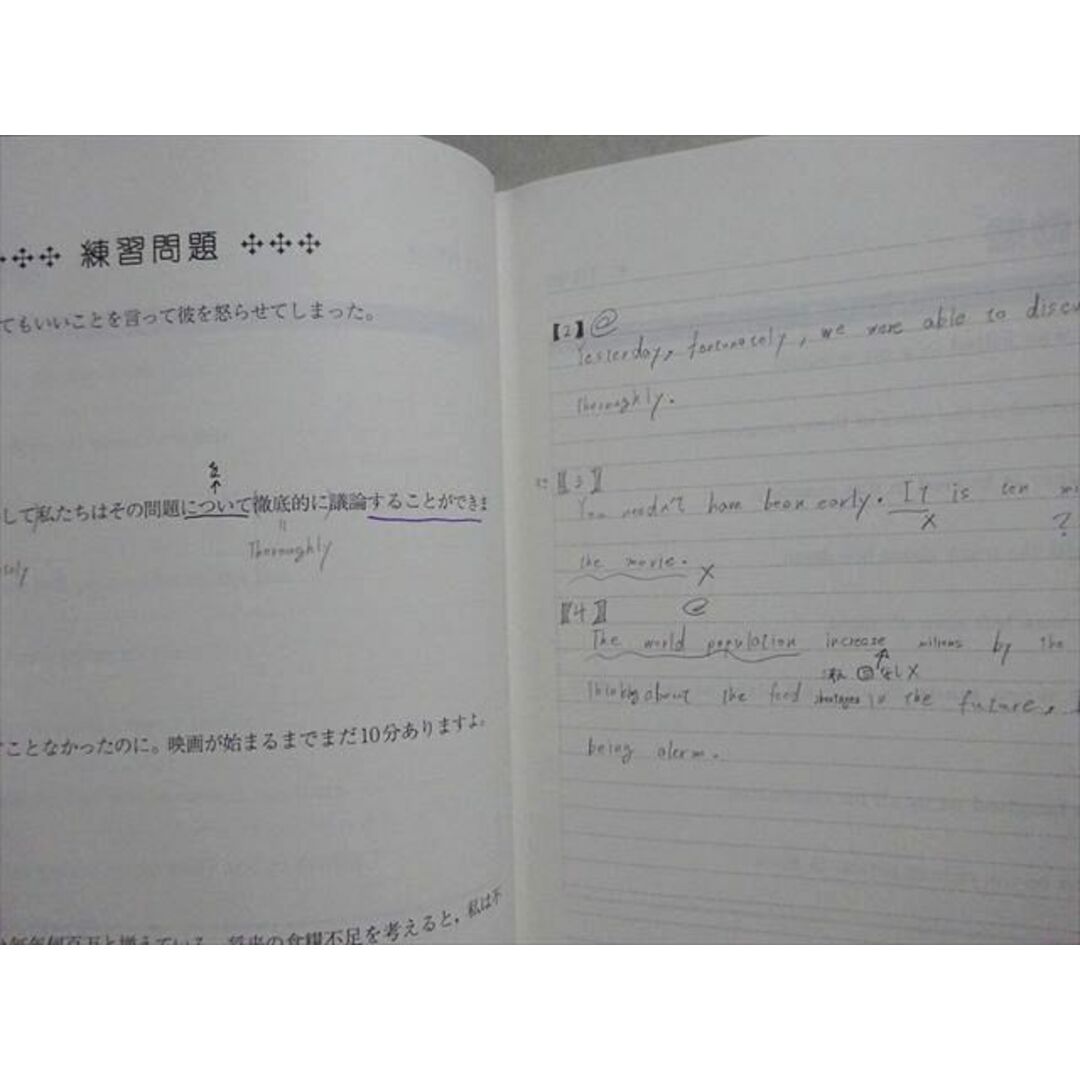 練習問題
てもいいことを言って彼を怒らせてしまった。
して私たちはその問題について徹底的に議論することができま
Thoroughly
ことなかったのに。映画が始まるまでまだ10分ありますよ。
と増えている。将来の食糧不足を考えると，私は不
【2】
Yesterday, fortunately, we were able to discu
thoroughly.
【3】
You needn't have been early. It is ten mi
X ?
the movie. X
【4】
The world population increase millions by the
なし X
Thinking about the food shortages in the future,
being alerm.